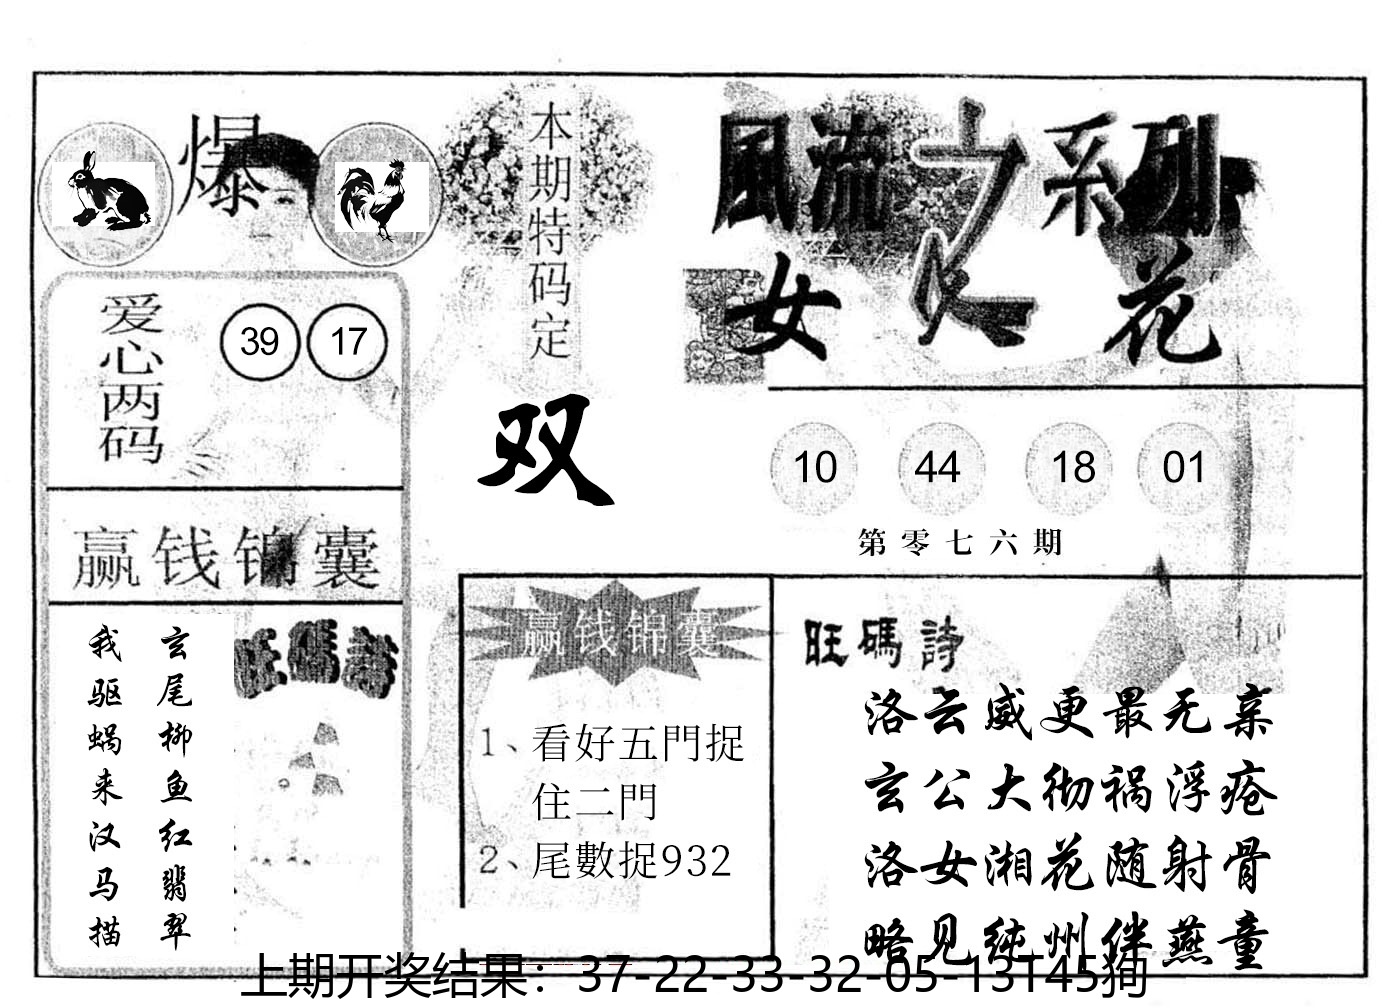 爆
本期特码定
双
風流之系列
女人花
爱心两码
39 17
10 44 18 01
第零七六期
赢钱锦囊
旺碼詩
玄尾柳鱼红翡翠
我驱蜗来汉马描
赢钱锦囊
1、看好五門捉
住二門
2、尾數捉932
旺碼詩
洛云威更最无亲
玄公大彻祸浮疮
洛女湘花随射骨
略见纯州伴燕童
上期开奖结果：37-22-33-32-05-13T45狗